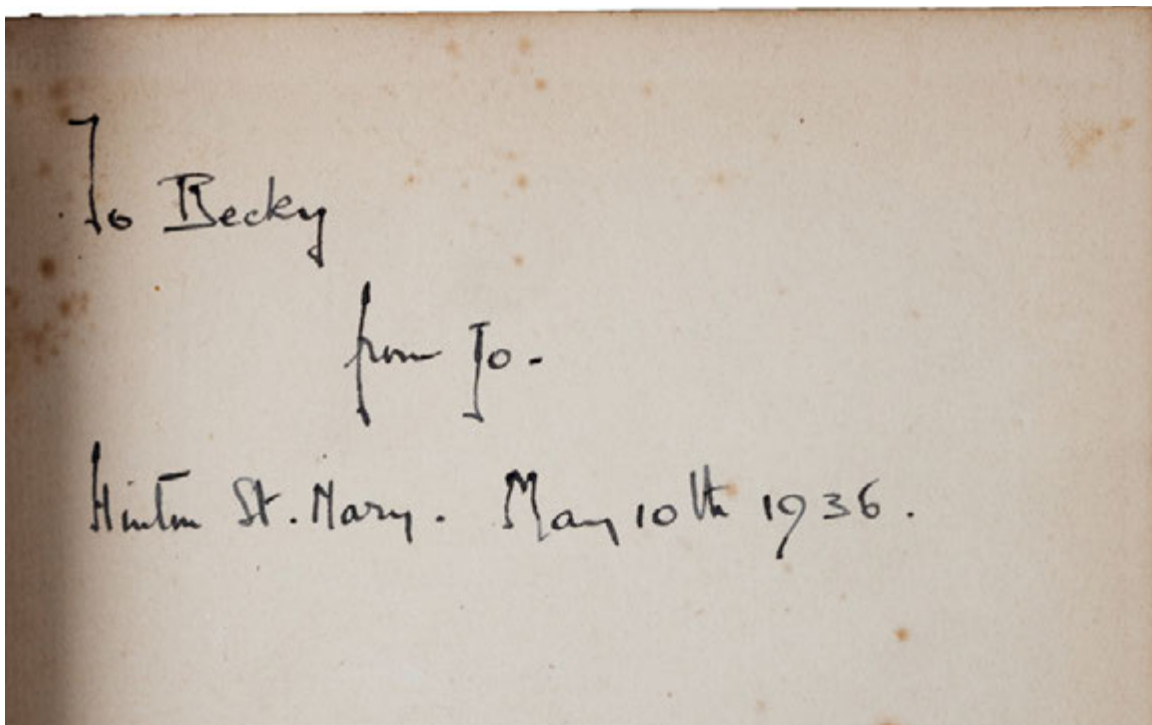 To Becky
from Jo -
Hinton St. Mary. May 10th 1936.